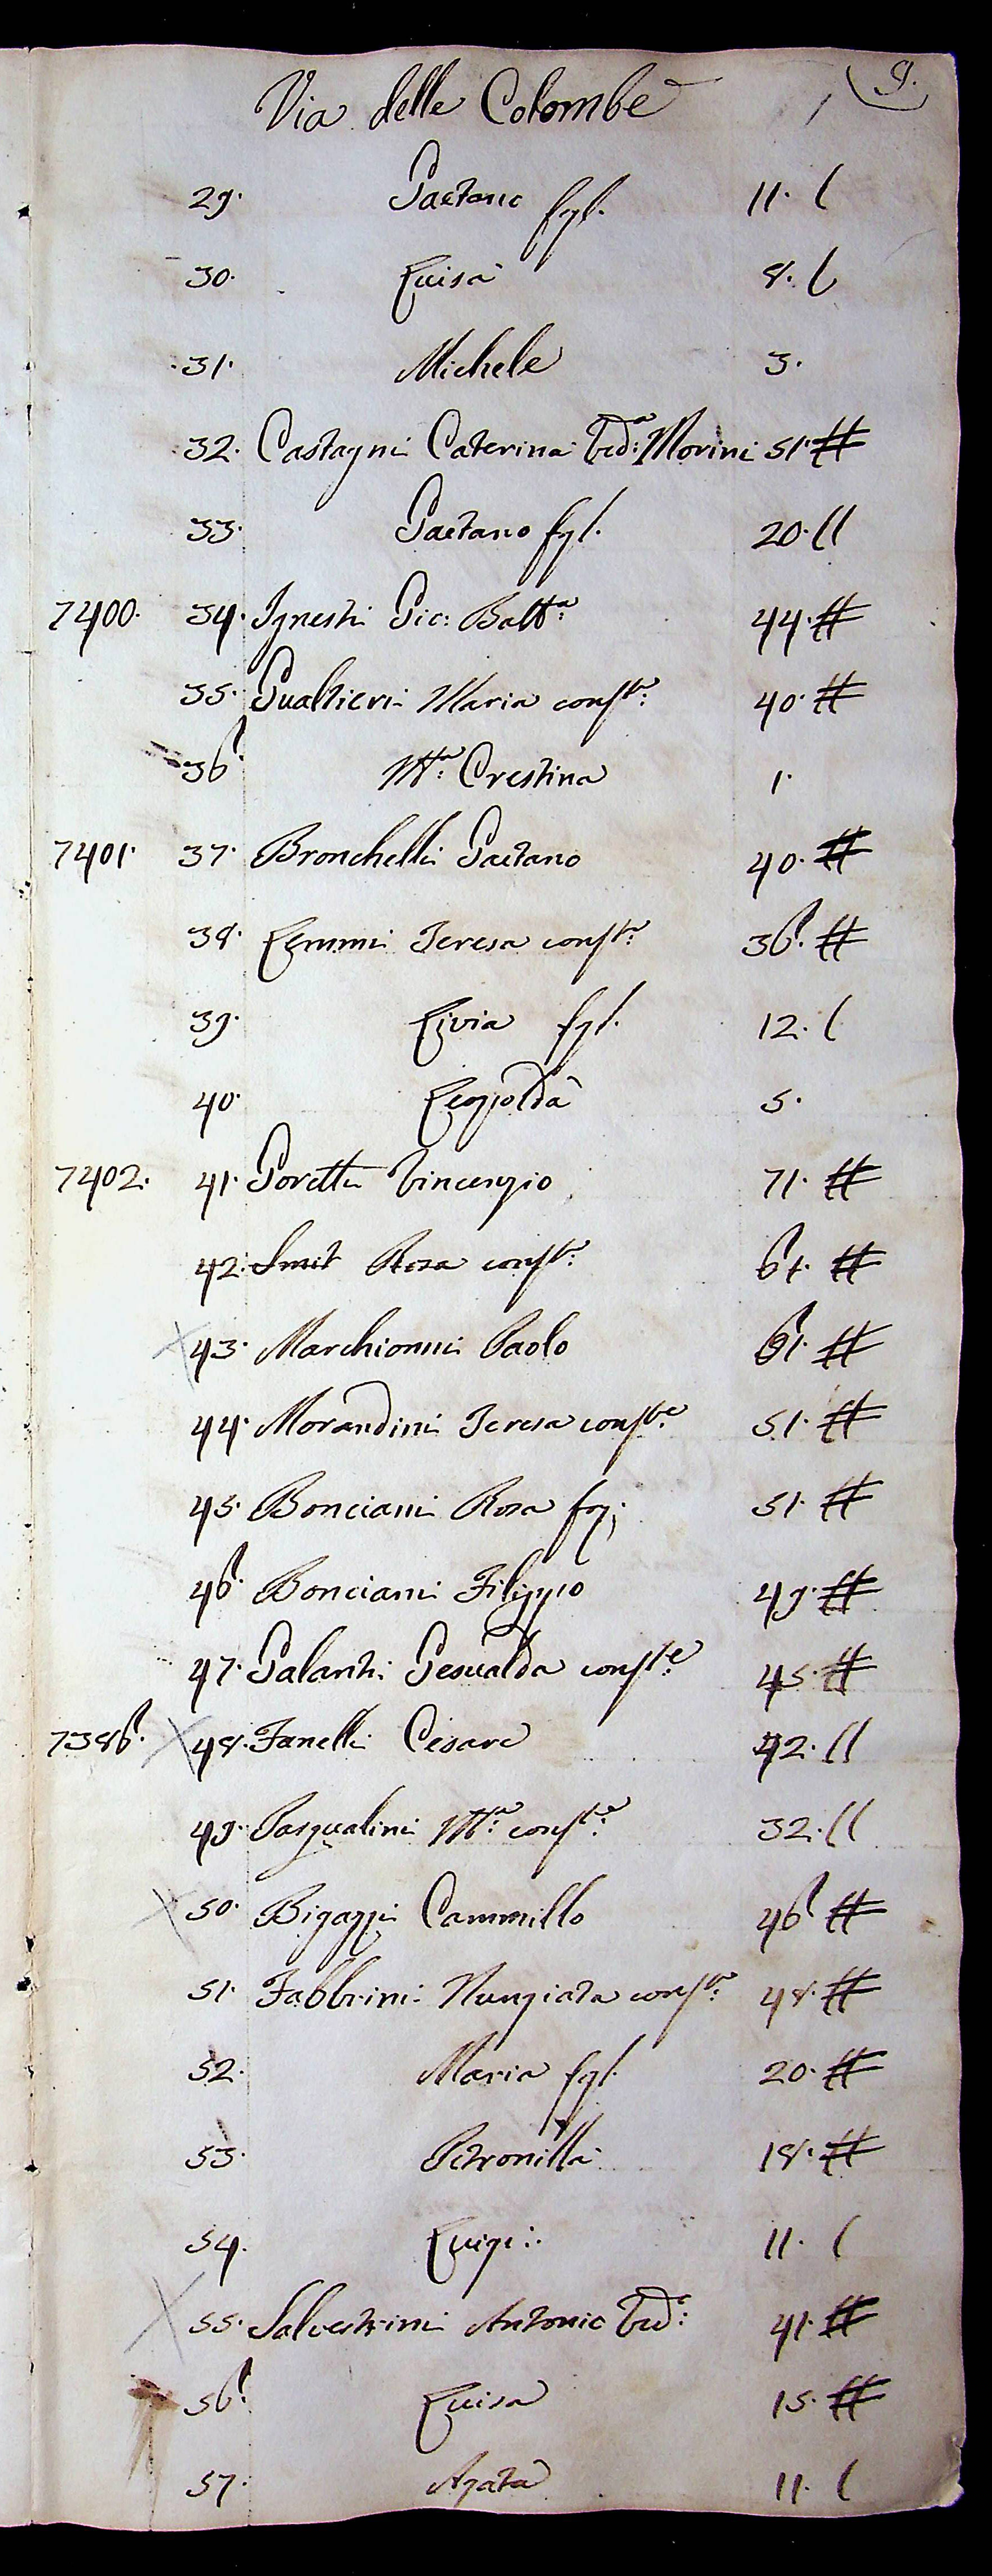 9.
Via delle Colombe
29. Gaetano fgl. 11. (
30. Luisa 8. (
31. Michele 3.
32. Castagni Caterina Ved:ª Morini 51. #
33. Gaetano fgl. 20. ((
7400. 34. Ignesti Gio: Battª 44. #
35. Gualtieri Maria consᵗᵉ: 40. #
36. Mª: Crestina 1.
7401. 37. Bronchelli Gaetano 40. #
38. Lemmi Teresa consᵗᵉ: 36. #
39. Livia fgl. 12. (
40. Leopolda 5.
7402. 41. Poretti Vincenzio 71. #
42. Smit Rosa consᵗᵉ: 61. #
43. Marchionni Paolo 61. #
44. Morandini Teresa consᵗᵉ: 51. #
45. Bonciani Rosa 51. #
46. Bonciani Filippo 49. #
47. Galanti Gesualda consᵗᵉ: 45. #
7386. 48. Fanelli Cesare 42. ((
49. Pasqualini Mª: consᵗᵉ: 32. ((
50. Bigazzi Cammillo 46 #
51. Fabbrini Nunziata consᵗᵉ: 48. #
52. Maria fgl. 20. #
53. Petronilla 18. #
54. Luigi: 11. (
55. Salvestrini Antonio Vedº: 41. #
56. Luisa 15. #
57. Agata 11. (